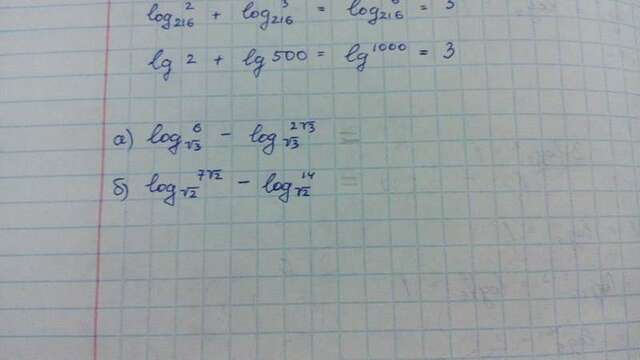 log₂₁₆ 2 + log₂₁₆ 3 = log₂₁₆ 6 = 3
lg 2 + lg 500 = lg 1000 = 3
а) log√3 6 − log√3 2√3 =
б) log√2 7√2 − log√2 14 =